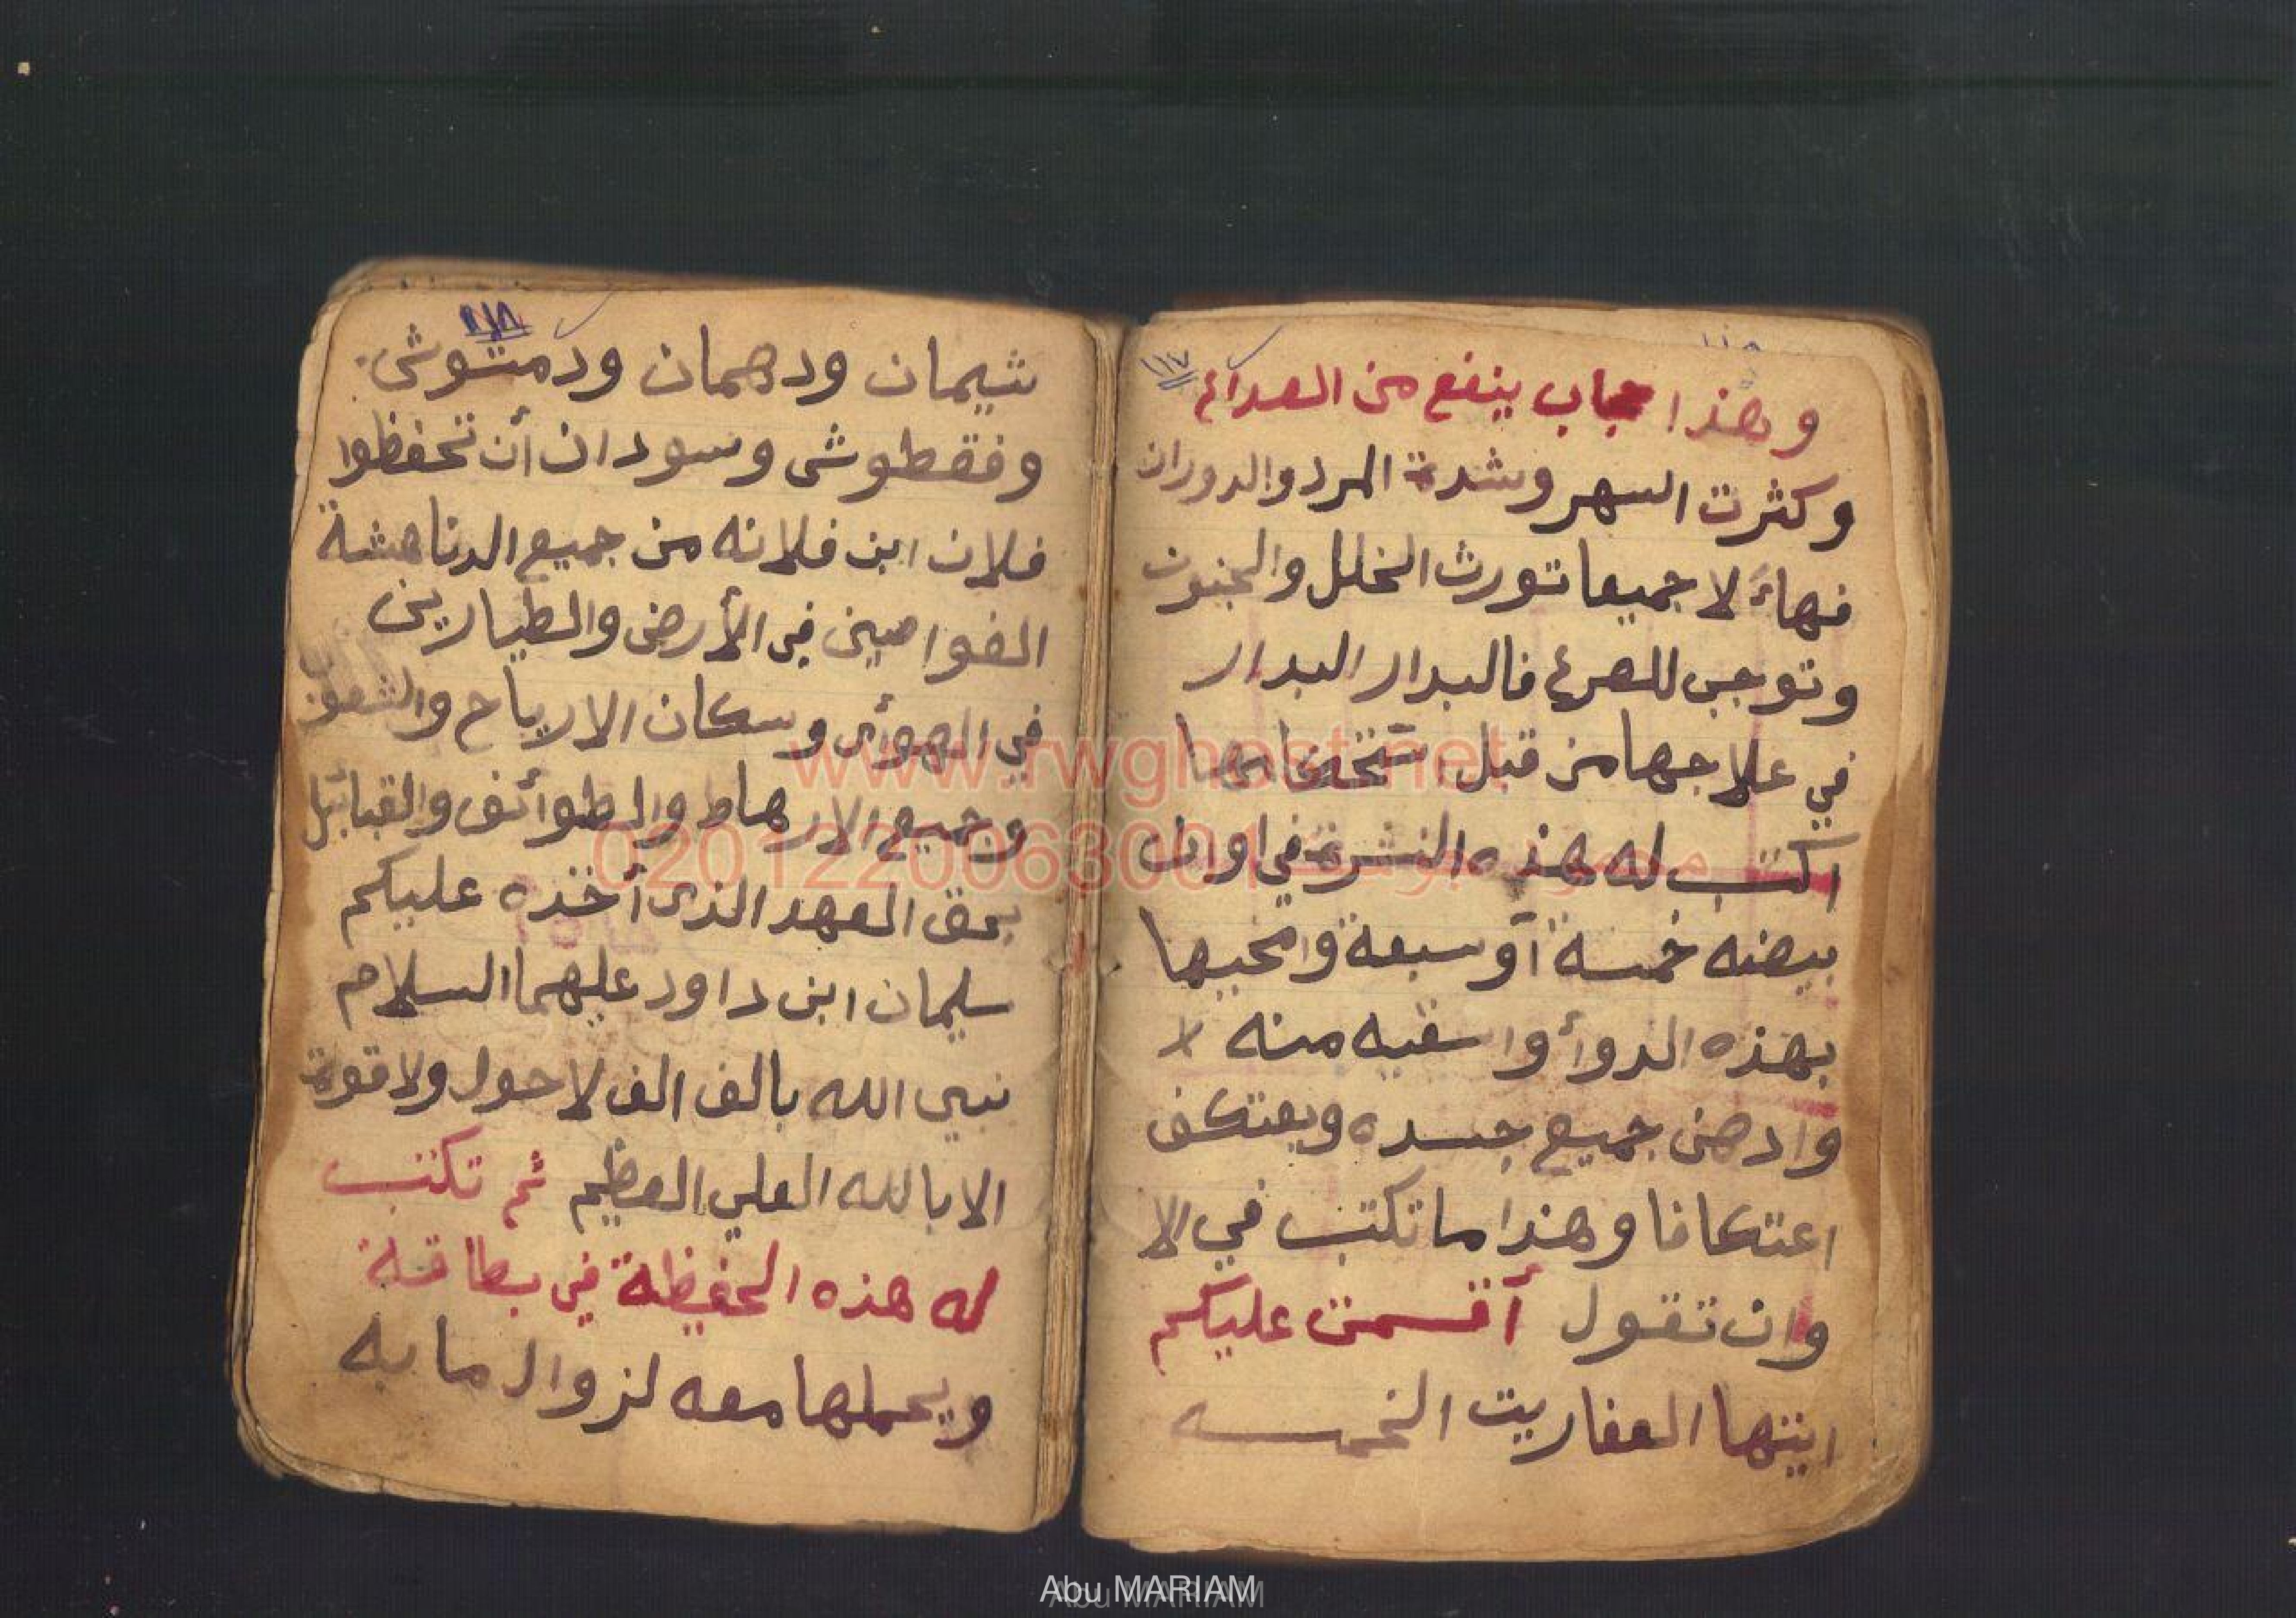 ١١٧
وهذا حجاب ينفع من الصداع
وكثرت السهر وشدة المرد والدوران
فهاءلا جميعا تورث الخلل والجنون
وتوجب للصرع فالبدار البدار
في علاجها من قبل
اكتب له هذه النشرة في اوان
بيضه خمسة أو سبعة وامحيها
بهذه الدوأ واسقيه منه
وادهن جميع جسده ويعتكف
اعتكافا وهذا ما تكتب في الا
وان تقول أقسمت عليكم
ايتها العفاريت الخمسه
١١٨
شيمان ودهمان ودمتوشى
وفقطوشى وسودان أن تحفظوا
فلان ابن فلانه من جميع الدناهشة
الغواصين في الأرض والطيارين
في الهوأى وسكان الارياح
وجميع الارهاط والطوأئف والقبائل
بحق العهد الذى أخذه عليكم
سليمان ابن داود عليهما السلام
نبي الله بالف الف لاحول ولا قوة
الا بالله العلي العظيم ثم تكتب
له هذه الحفيظة في بطاقة
ويحملها معه لزوال ما به
www.rwghost.net
0201220063001
Abu MARIAM